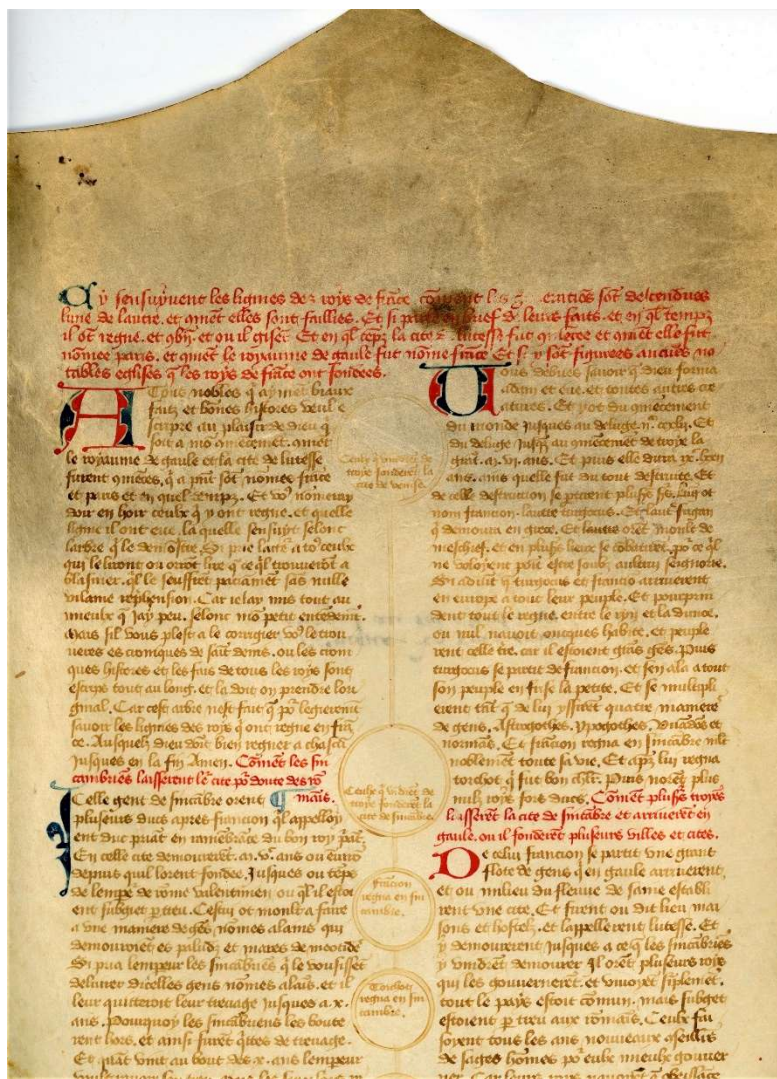 Cy sensuyvent les lignies dez roys de frãce coment les g eratiõs sõt descendues
lune de lautre. et cõmẽt elles sont faillies. Et si parle en brief d leurs faits. et en ql tempz
il õt regne. et obẏ. et ou il gisẽt. Et en ql tẽpz la cite lutesse fut et cõmẽt elle fut
nõmee paris. et cõmẽt le royaume de gaule fut nõme frãce Et si y sõt figurees aucues no
tables eglises q les roys de frãce ont fondees.
A Tous nobles q aymẽt biaux
faitz et bõnes histores veul e
scripre au plaisir de dieu q
soit a mõ cõmẽcemẽt. cõmẽt
le royaume de gaule et la cite de lutesse
furent cõmẽces, q a pñt sõt nõmee frãce
et paris et en quel tempz. Et voꝰ nõmeray
doir en hoir ceulx q y ont regne. et quelle
lignie il ont eue. la quelle sensuyt selonc
larbre q le demõstre. Si prie a toꝰ ceulx
qui le liront ou orrõt lire q ce ql trouuerõt a
blasmer. ql le seuffrẽt paciãmẽt sãs nulle
vilaine rephension. Car ie lay mis tout au
mieulx q jay peu. selonc mõ petit entẽdemẽt.
Mais sil vous plest a le corrigier voꝰ le trou
veres es croniques de saĩt denis. ou les croni
ques histores et les fais de tous les roys sont
escrips tout au long. et la doit on prendre lori
ginal. Car cest arbre nest fait q põ legierement
savoir les lignies des roys q ont regne en frã
ce. Ausquelz dieu doit bien regner a chascũ
jusques en la fin Amen. Cõmẽt les sin
cambriẽs laisserent le cite põ doute des rõ
mãis.
Icelle gent de sincãbre orent
plusieurs ducs apres francion ql appelloy
ent duc priãt en ramẽbrãce du bon roy priãt.
En celle cite demourerẽt .m. vͨ. ans ou euirõ
depuis quil lorent fondee. Jusques ou tẽps
de lempe de rõme valentinien ou ql il estoi
ent subgiet p treu. Cestui ot mõlt a faire
a une maniere de gẽs nõmes alains qui
demouroiẽt es paludz et mares de meotide
Si pria lempeur les sincãbriẽs q le vousissẽt
delivrer dicelles gens nõmes alaĩs. et il
leur quitteroit leur treuage jusques a .x.
ans. Pourquoy les sincãbriens les boute
rent hors. et ainsi furẽt qttes de treuage.
Et quãt vint au bout des .x. ans lempeur
Ceulx q vindrẽt de
troye fonderẽt la
cite de venise.
Ceulx q vidrẽt de
troye fonderẽt la
cite de sincãbre.
francion
regna en sin
cambre.
Torchot
regna en sin
cambre.
Vous debues savoir q dieu forma
adam et eve. et toutes autres cre
atures. Et y ot du cõmẽcement
du monde jusques au deluge
du deluge jusqz au cõmẽcemẽt de troye la
grãt .m. vi. ans. Et puis elle dura
ans. ains quelle fut du tout destruite. Et
de celle destruction se ptirent plusrs
nom francion. lautre turgocus.
q demoura en grece. Et lautre orẽt moult de
meschief. et en plusrs lieux se cõbatirẽt. põ ce ql
ne veloyent poĩt estre soubz aultrui seignorie.
Si advit q turgocus et francio arriverent
en europe a tout leur peuple. Et pourprin
drent tout le regne. entre le ryn et la dunoe.
ou nul navoit oncques habite. et peuple
rent celle tre. car il estoient grãs gẽs. Puis
turgocus se partit de francion. et sen ala a tout
son peuple en frise la petite. Et se multipli
erent tãt q de luy yssirẽt quatre manieres
de gens. Astrogothes. Ypogothes. Wãdes et
normãs. Et frãcion regna en sincãbre mlt
noblement toute sa vie. Et apz luy regna
torchot q fut bon chlr. Puis norẽt plus
nulz roys fors ducs. Cõmẽt plusrs troyẽs
laisserẽt la cite de sincãbre et arriverẽt en
gaule. ou il fonderẽt plusieurs villes et cites.
De celui francion se partit une grant
flote de gens q en gaule arriverent.
et ou milieu du fleuve de saine establi
rent une cite. Et firent ou dit lieu mai
sons et hostelz. et lappellerent lutesse. Et
y demourerent jusques a ce q les sincãbriẽs
y vindrẽt demourer Il orẽt plusieurs roys
qui les gouvernerẽt. et vivoyẽt siplemẽt.
tout le pays estoit cõmun. mais subget
estoient p treu aux rõmaĩs. Ceulx fai
soyent tous les ans nouveaux cõseilliẽs
de sages hõmes põ eulx mieulx gouver
ner. Car leurs roys